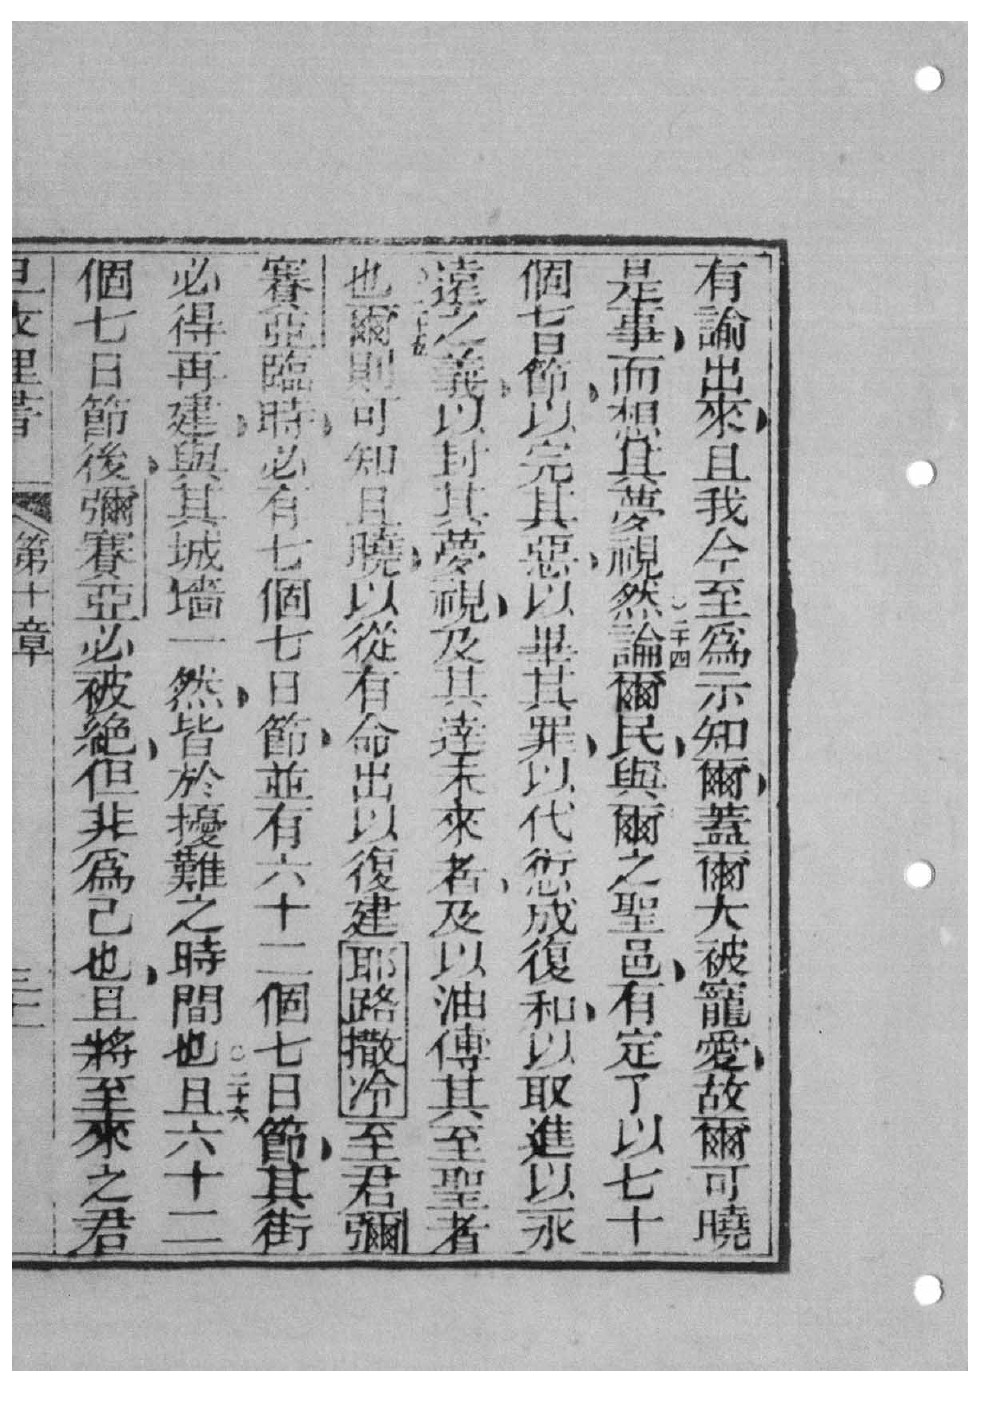 有諭出來且我今至爲示知爾蓋爾大被寵愛故爾可曉
是事而想其夢視然○二十四論爾民與爾之聖邑有定了以七十
個七日節以完其惡以畢其罪以代愆成復和以取進以永
遠之義以封其夢視及其達未來者及以油傅其至聖者
○二十五也爾則可知且曉以從有命出以復建耶路撒冷至君彌
賽亞臨時必有七個七日節並有六十二個七日節其街
必得再建與其城墻一然皆於擾難之時間也○二十六且六十二
個七日節後彌賽亞必被絕但非爲己也且將至來之君
第十章